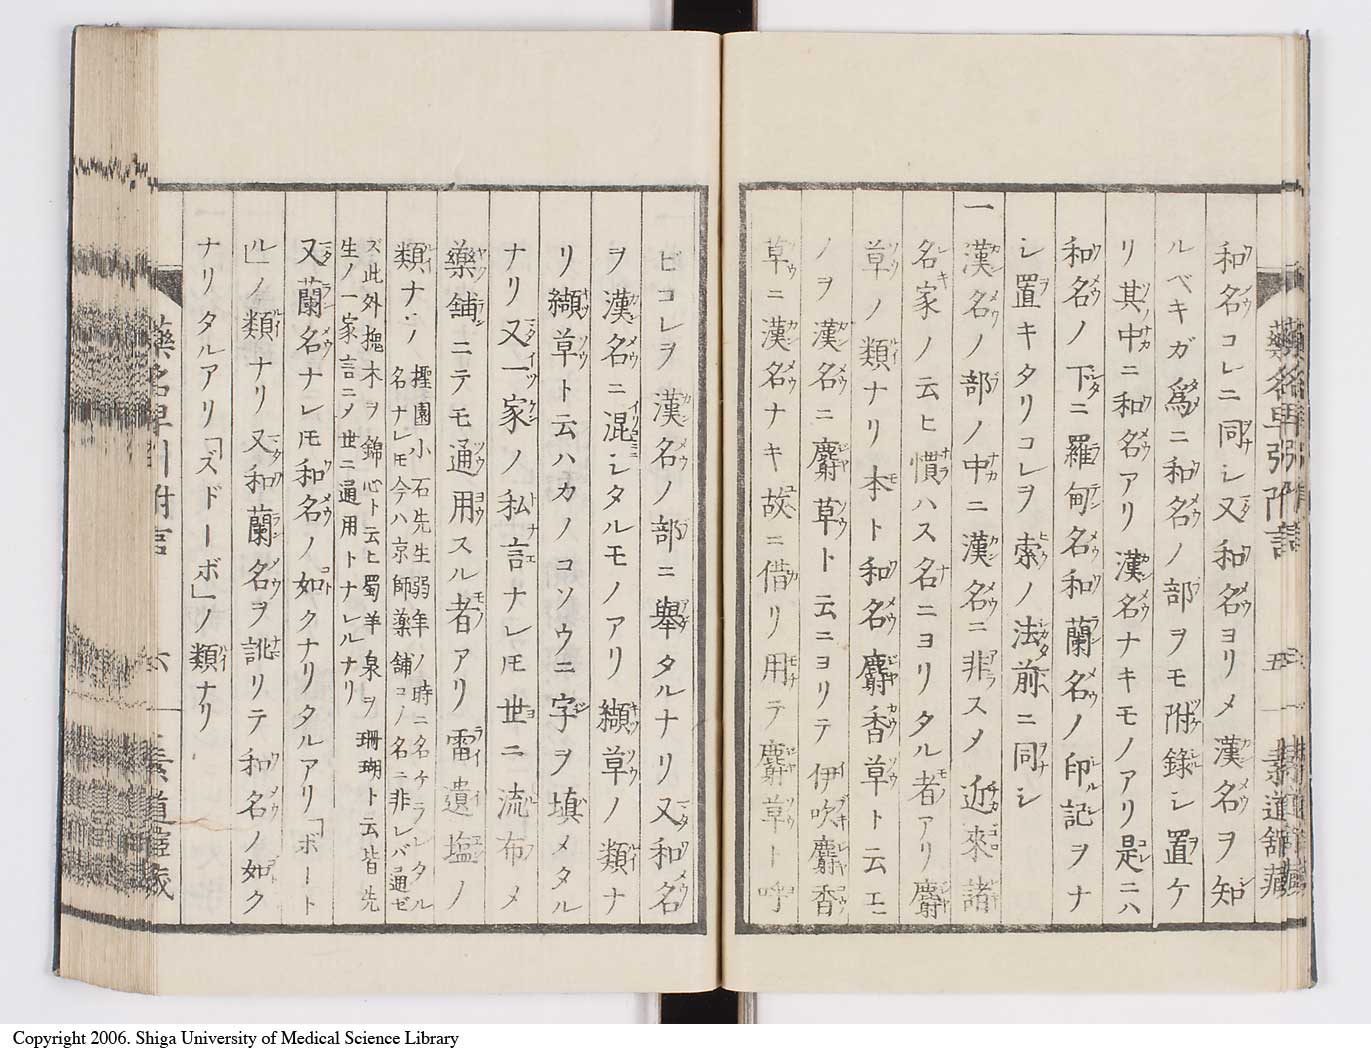 和名コレニ同シ又和名ヨリ〆漢名ヲ知
ルベキガ爲ニ和名ノ部ヲモ附錄シ置ケ
リ其中ニ和名アリ漢名ナキモノアリ是ニハ
和名ノ下ニ羅甸名和蘭名ノ印記ヲナ
シ置キタリコレヲ索ノ法前ニ同シ
一漢名ノ部ノ中ニ漢名ニ非ス〆近來諸
名家ノ云ヒ慣ハス名ニヨリタル者アリ麝
草ノ類ナリ本ト和名麝香草ト云エ
ノヲ漢名ニ麝草ト云ニヨリテ伊吹麝香
草ニ漢名ナキ故ニ借リ用テ麝草ト呼
五
素道舘藏
ビコレヲ漢名ノ部ニ擧タルナリ又和名
ヲ漢名ニ混シタルモノアリ纈草ノ類ナ
リ纈草ト云ハカノコソウニ字ヲ塡メタル
ナリ又一家ノ私言ナレ𪜈世ニ流布〆
藥舖ニテモ通用スル者アリ雷遺塩ノ
類ナドノ
檉園小石先生弱年ノ時ニ名ケラレタル
名ナレ𪜈今ハ京師藥舖コノ名ニ非レバ通ゼ
ズ此外塊木ヲ錦心ト云ヒ蜀羊泉ヲ珊瑚ト云皆先
生ノ一家言ニ〆世ニ通用トナレルナリ
又蘭名ナレ𪜈和名ノ如クナリタルアリ「ボート
ル」ノ類ナリ又和蘭名ヲ訛リテ和名ノ如ク
ナリタルアリ「ズドーボ」ノ類ナリ
藥名早引附言
六
素道舘藏
Copyright 2006. Shiga University of Medical Science Library